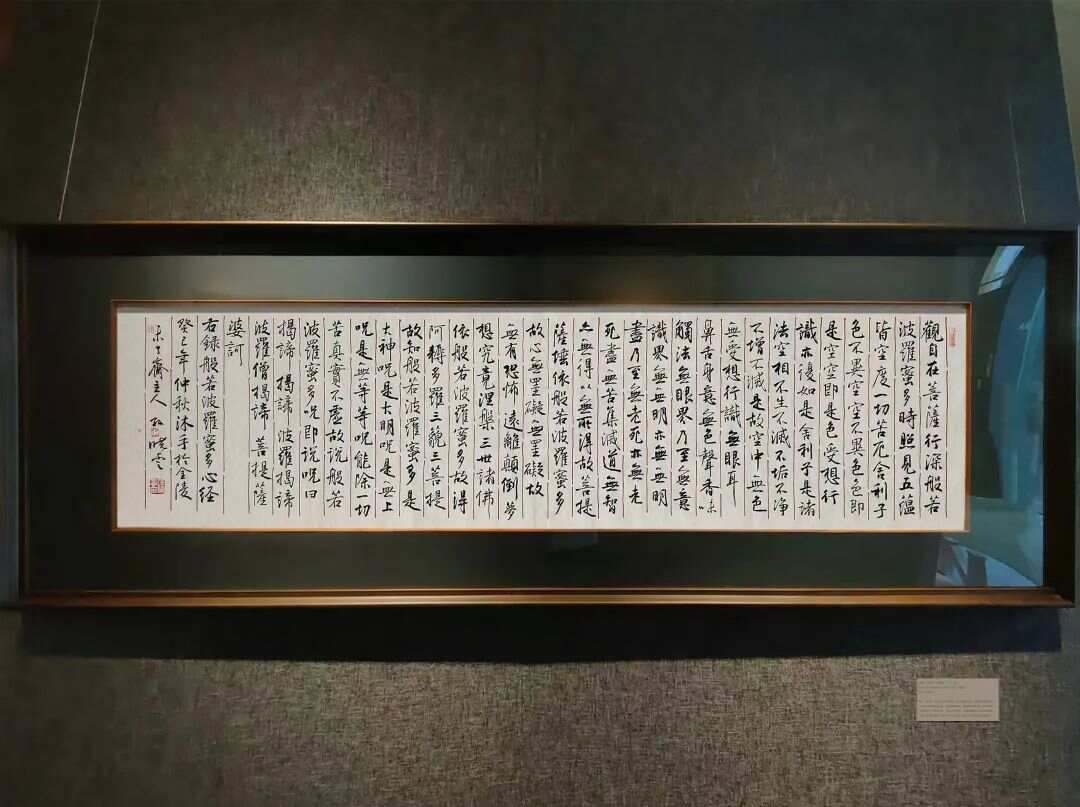 觀自在菩薩行深般若
波羅蜜多時照見五蘊
皆空度一切苦厄舍利子
色不異空空不異色色即
是空空即是色受想行
識亦復如是舍利子是諸
法空相不生不滅不垢不净
不增不減是故空中無色
無受想行識無眼耳
鼻舌身意無色聲香味
觸法無眼界乃至無意
識界無無明亦無無明
盡乃至無老死亦無老
死盡無苦集滅道無智
亦無得以無所得故菩提
薩埵依般若波羅蜜多
故心無罣礙無罣礙故
無有恐怖遠離顛倒夢
想究竟涅槃三世諸佛
依般若波羅蜜多故得
阿耨多羅三藐三菩提
故知般若波羅蜜多是
大神呪是大明呪是無上
呪是無等等呪能除一切
苦真實不虛故說般若
波羅蜜多呪即說呪曰
揭諦揭諦波羅揭諦
波羅僧揭諦菩提薩
婆訶
右録般若波羅蜜多心經
癸巳年仲秋沐手於金陵
了齋主人 孫曉雲